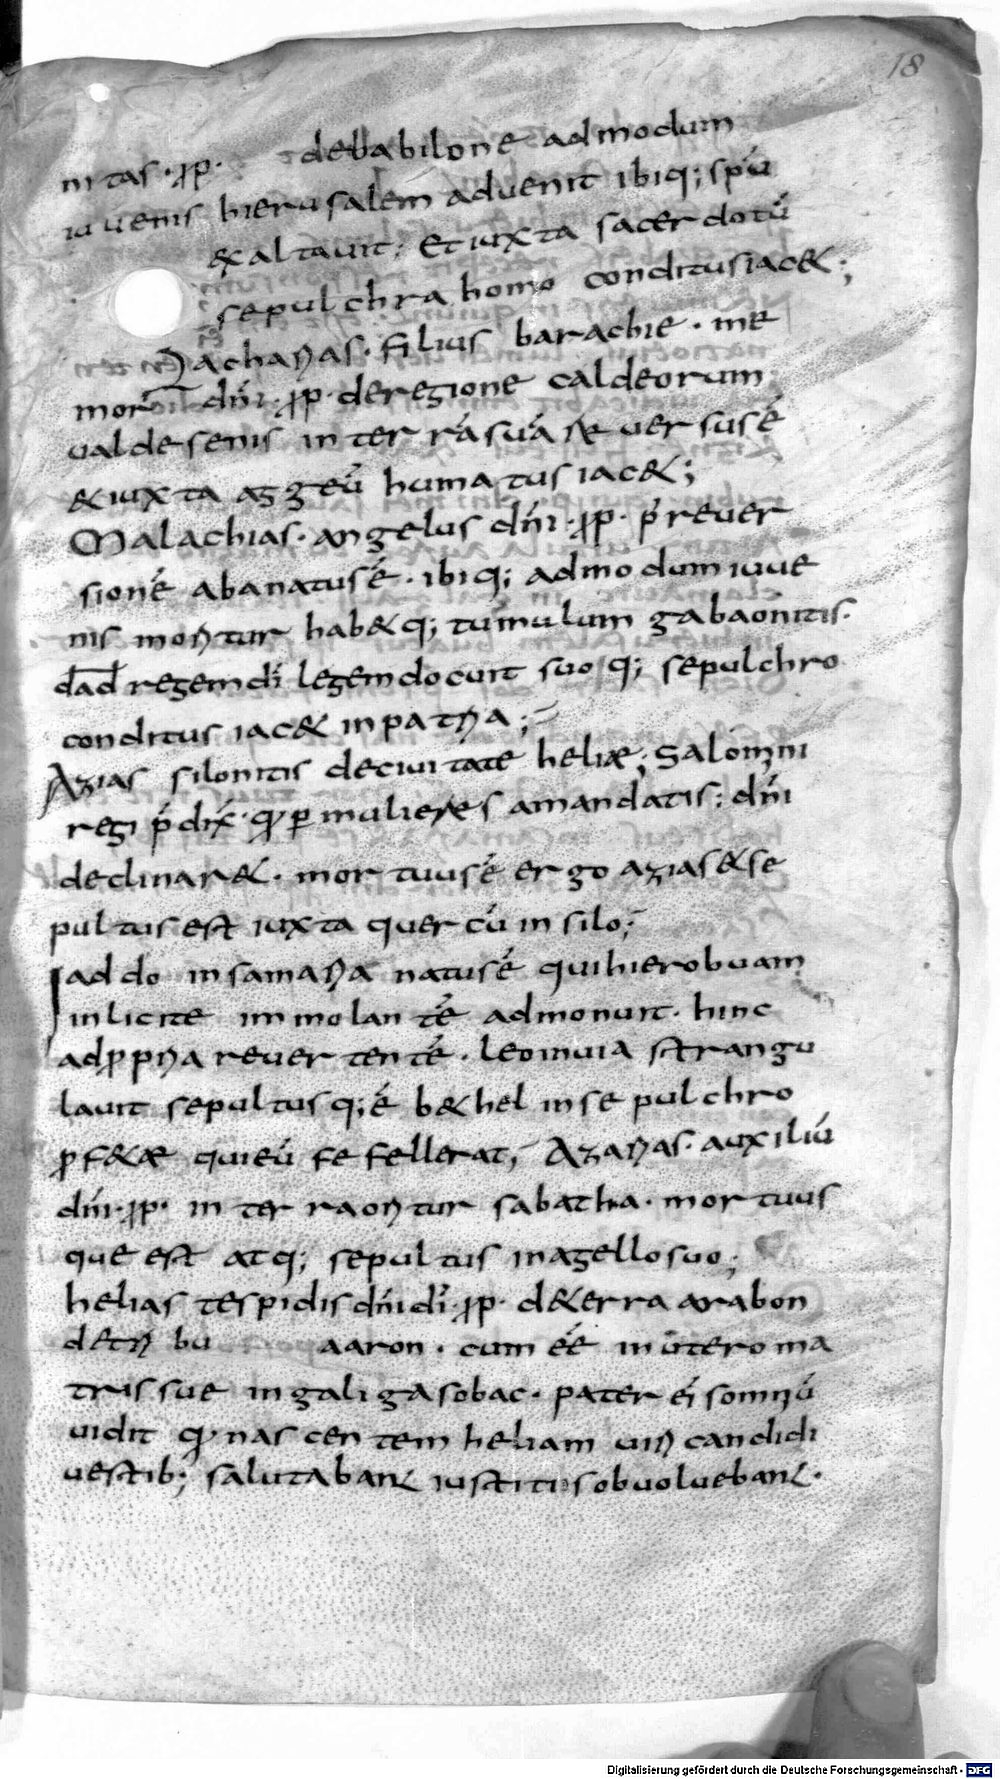 18
nitas · ꝓp̄ · debabilone admodum
iuuenis hierusalem aduenit ibiq; spū
&altauit; Et iuxta sacerdotū
sepulchra homo conditus iac&;
Zacharias · filius barachie · me
mor dn̄i · ꝓp̄ · deregione caldeorum
ualde senis in terrā suā reuersus ē
& iuxta aggeū humatus iac&;
Malachias · angelus dn̄i · ꝓp̄ · p̄ reuer
sionē abanatus ē · ibiq; admodum iuue
nis moritur hab&q; tumulum gabaonitis ·
dad̄ regem dī legem docuit suoq; sepulchro
conditus iac& in patria;
Azias silonitis de ciuitate heliæ; Salomoni
regi p̄dix̄ · qꝫ ꝑ mulieres a mandatis; dn̄i
declinar& · mortuus ē ergo azias & se
pultus est iuxta quercū in silo;
Iaddo in samaria natus ē qui hierobuam
inlicite immolantē admonuit · hinc
ad ꝓpria reuertentē · leo in uia strangu
lauit sepultusq; ē b&hel in sepulchro
ꝓf&æ qui eū fefellerat; Azarias · auxiliū
dn̄i · ꝓp̄ · in terra oritur sabatha · mortuus
que est atq; sepultus in agello suo;
helias tespidis dn̄i dī · ꝓp̄ · d& erra arabon
de tri bu aaron · cum eē in utero ma
tris sue in galigasobac · pater ei somniū
uidit qꝫ nascentem heliam uiri candidi
uestib; salutabant iustitiis obuoluebant ·
Digitalisierung gefördert durch die Deutsche Forschungsgemeinschaft - DFG